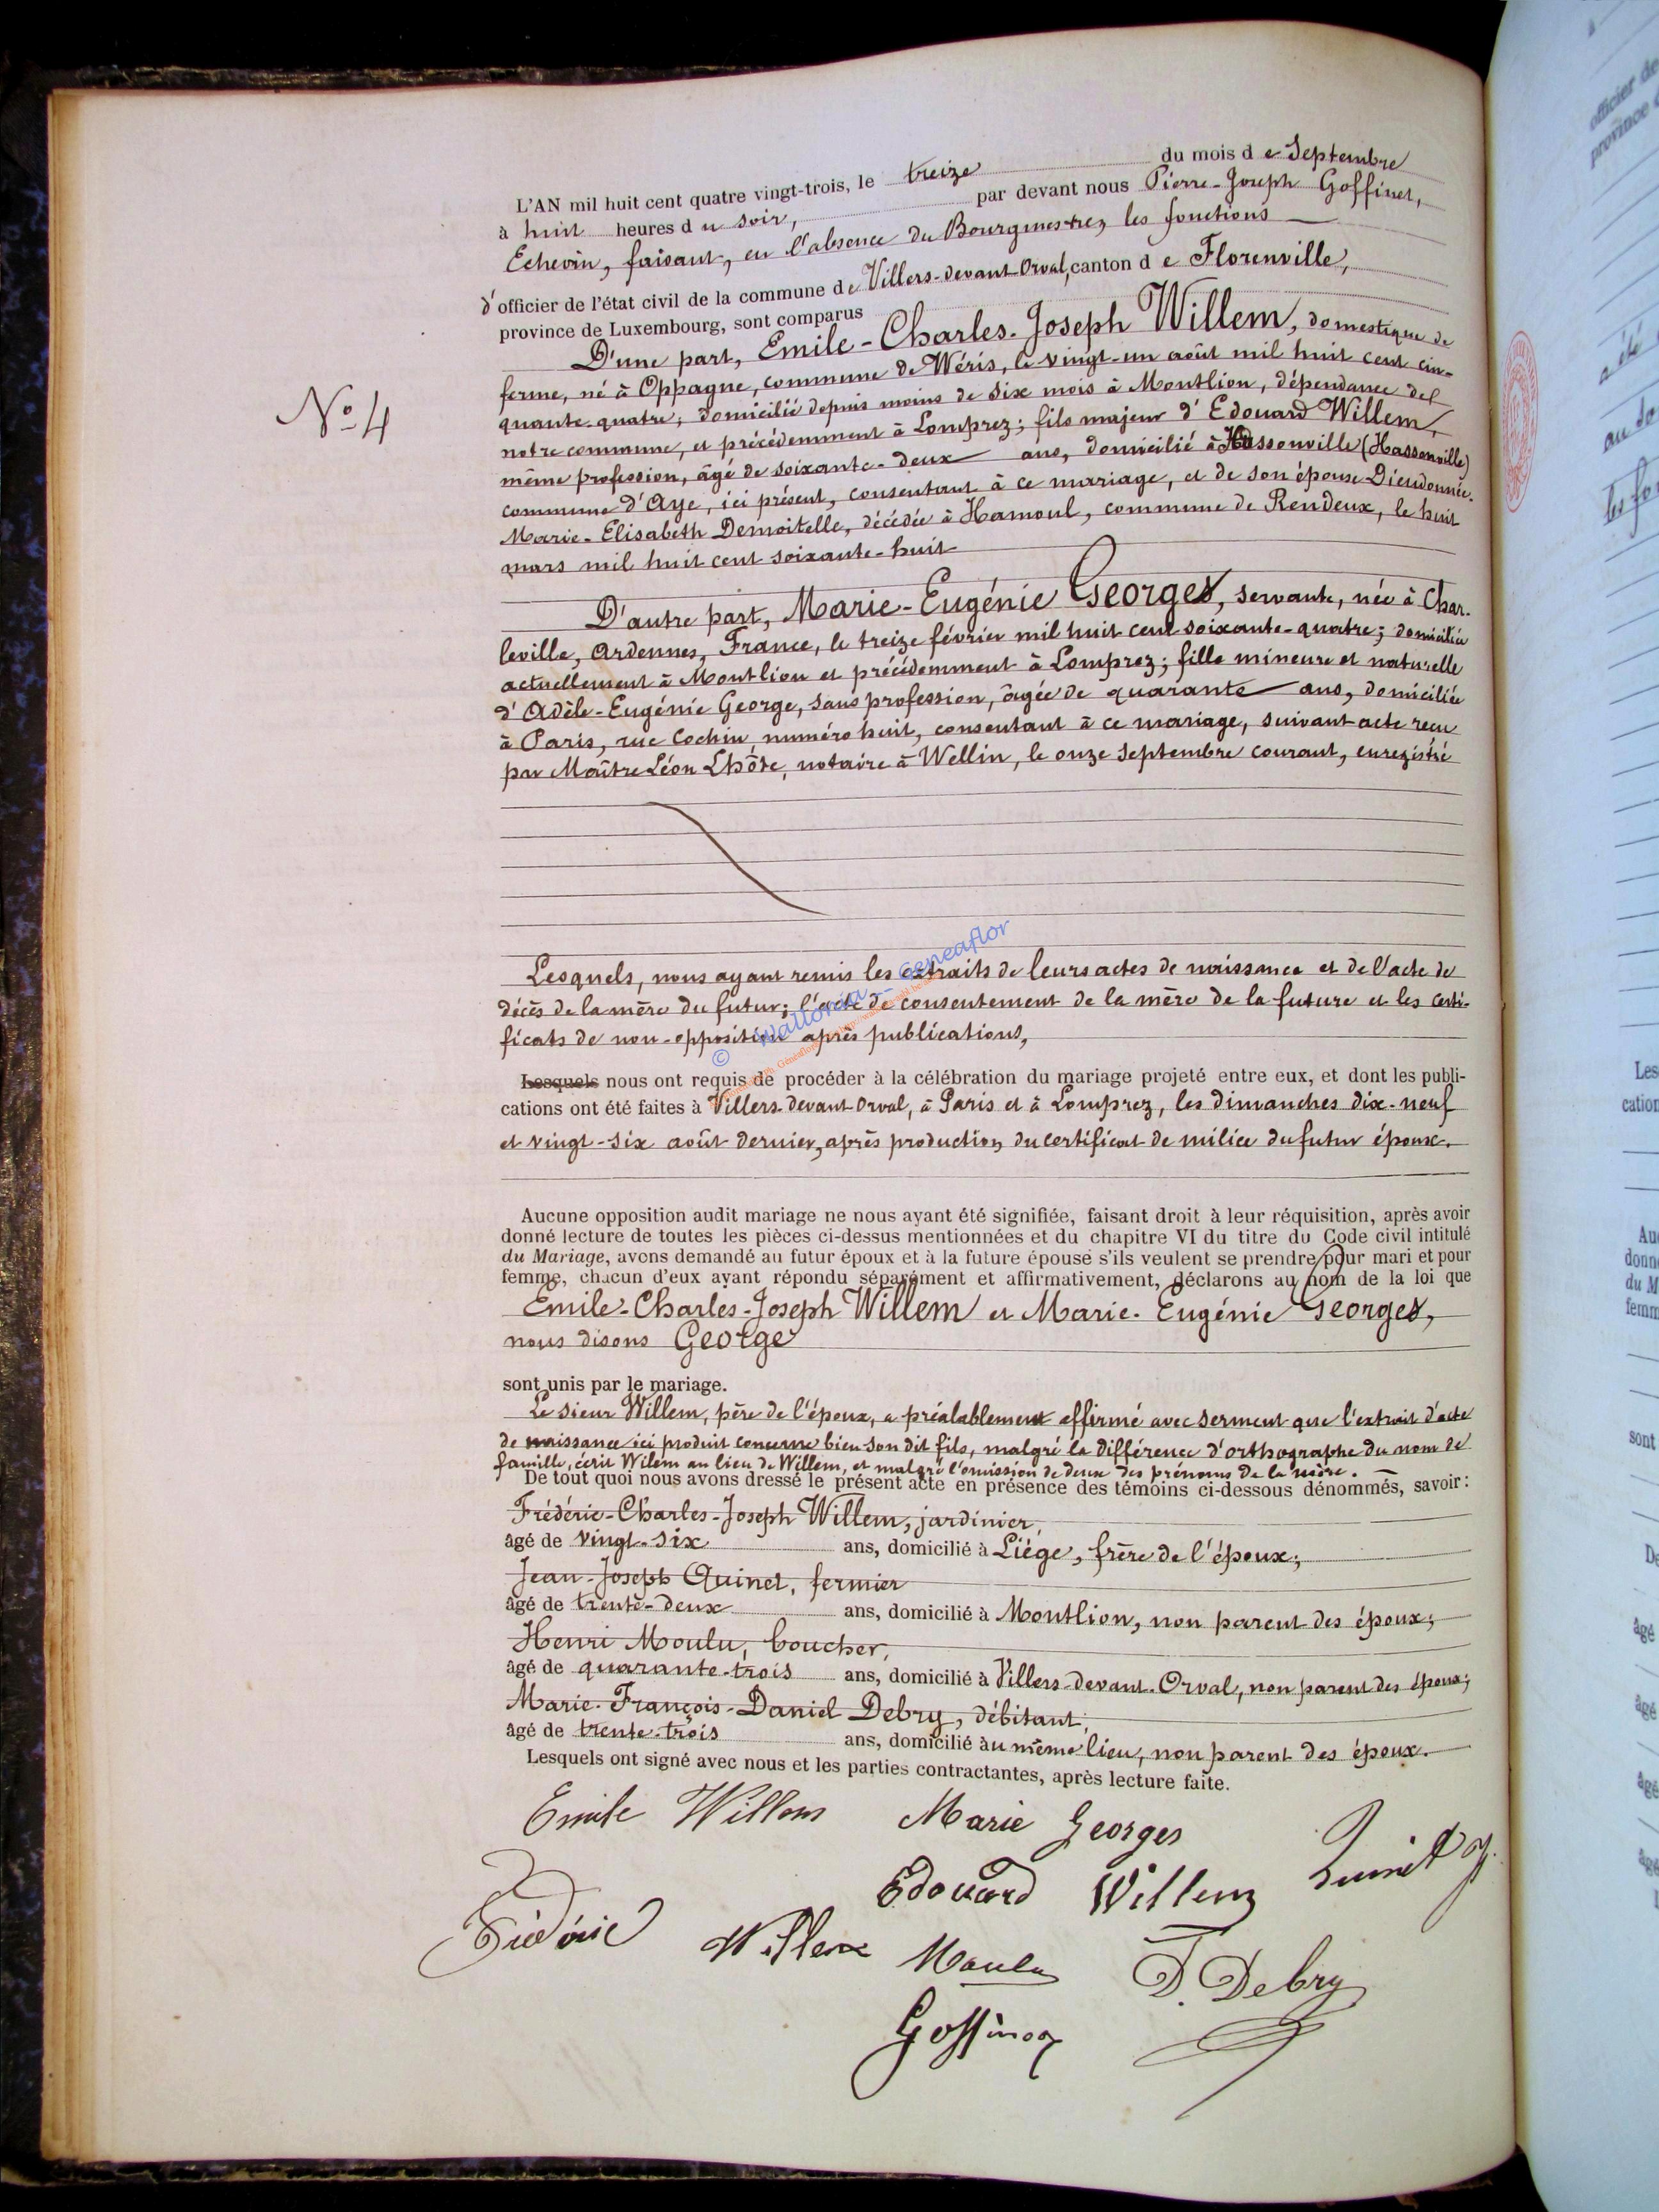 L'AN mil huit cent quatre vingt-trois, le treize du mois de Septembre
à huit heures du soir, par devant nous Pierre-Joseph Goffinet,
Echevin, faisant, en l'absence du Bourgmestre, les fonctions
d'officier de l'état civil de la commune de Villers-devant-Orval, canton de Florenville,
province de Luxembourg, sont comparus
D'une part, Emile-Charles-Joseph Willem, domestique de
ferme, né à Oppagne, commune de Wéris, le vingt-un août mil huit cent cin-
quante quatre; domicilié depuis moins de six mois à Montlion, dépendance de
notre commune, et précédemment à Lomprez; fils majeur d'Edouard Willem,
même profession, âgé de soixante-deux ans, domicilié à Hassonville (Hassonville)
commune d'Aye, ici présent, consentant à ce mariage, et de son épouse Dieudonnée-
Marie-Elisabeth Demoitelle, décédée à Hamoul, commune de Rendeux, le huit
mars mil huit cent soixante-huit
N° 4
D'autre part, Marie-Eugénie Georges, servante, née à Char-
leville, Ardennes, France, le treize février mil huit cent soixante-quatre; domiciliée
actuellement à Montlion et précédemment à Lomprez; fille mineure et naturelle
d'Adèle-Eugénie George, sans profession, âgée de quarante ans, domiciliée
à Paris, rue Cochin, numéro huit, consentant à ce mariage, suivant acte reçu
par Maître Léon Lhôte, notaire à Wellin, le onze Septembre courant, enregistré
Lesquels, nous ayant remis les extraits de leurs actes de naissance et de l'acte de
décès de la mère du futur; l'acte de consentement de la mère de la future et les certi-
ficats de non-opposition après publications,
© Wallonia - Geneaflor
Lesquels nous ont requis de procéder à la célébration du mariage projeté entre eux, et dont les publi-
cations ont été faites à Villers-devant-Orval, à Paris et à Lomprez, les dimanches dix-neuf
et vingt-six août dernier, après production du certificat de milice du futur époux.
Aucune opposition audit mariage ne nous ayant été signifiée, faisant droit à leur réquisition, après avoir
donné lecture de toutes les pièces ci-dessus mentionnées et du chapitre VI du titre du Code civil intitulé
du Mariage, avons demandé au futur époux et à la future épouse s'ils veulent se prendre pour mari et pour
femme, chacun d'eux ayant répondu séparément et affirmativement, déclarons au nom de la loi que
Emile-Charles-Joseph Willem et Marie-Eugénie Georges,
nous disons George
sont unis par le mariage.
Le sieur Willem, père de l'époux, a préalablement affirmé avec serment que l'extrait d'acte
de naissance ici produit concerne bien son dit fils, malgré la différence d'orthographe du nom de
famille, écrit Wilem au lieu de Willem, et malgré l'omission de deux des prénoms de la mère.
De tout quoi nous avons dressé le présent acte en présence des témoins ci-dessous dénommés, savoir :
Frédéric-Charles-Joseph Willem, jardinier,
âgé de vingt-six ans, domicilié à Liége, frère de l'époux;
Jean-Joseph Quinet, fermier
âgé de trente-deux ans, domicilié à Montlion, non parent des époux;
Henri Moulu, boucher,
âgé de quarante-trois ans, domicilié à Villers-devant-Orval, non parent des époux;
Marie-François-Daniel Debry, débitant,
âgé de trente-trois ans, domicilié au même lieu, non parent des époux.
Lesquels ont signé avec nous et les parties contractantes, après lecture faite.
Emile Willem Marie Georges
Edouard Willem Quinet J.
Frédéric Willem Moulu D. Debry
Goffinet